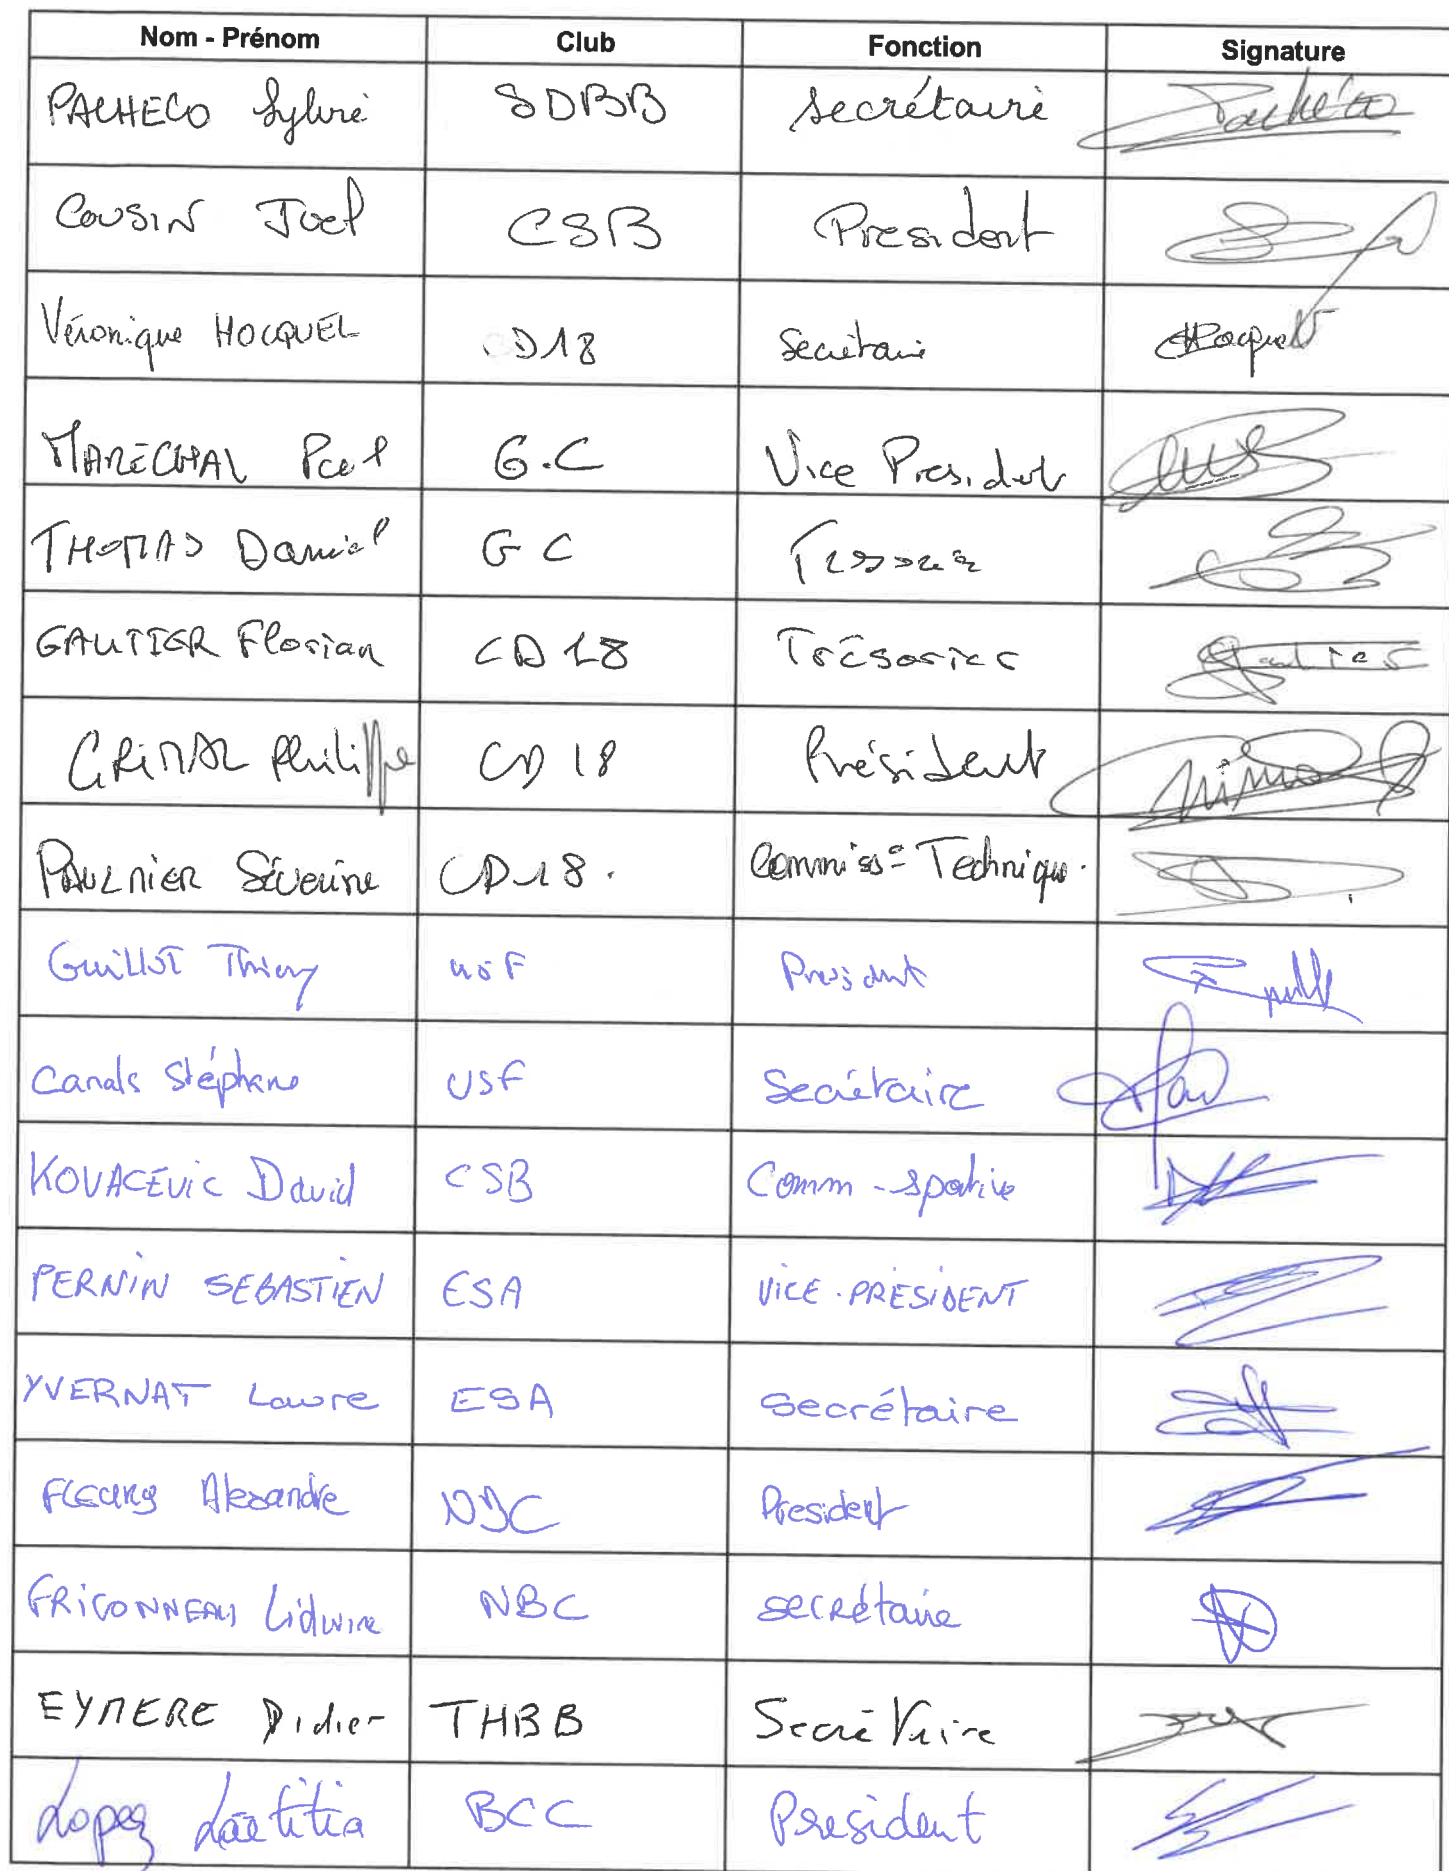 Nom - Prénom Club Fonction Signature
PACHECO Sylvie SDBB Secrétaire Pachéco
COUSIN Joël CSB President
Véronique HOCQUEL CD18 Secrétaire Hocquel
MARECHAL Paul G.C Vice President
THOMAS Daniel G C
GAUTIER Florian CD 18 Trésorier Gautier
GRIMAL Philippe CD 18 Président Grimal
PAULMIER Séverine CD18. Commiss° Technique.
Guillot Thierry USF President
Canals Stéphane USF Secrétaire
KOVACEVIC David CSB Comm - sportive
PERNIN SEBASTIEN ESA VICE-PRESIDENT
YVERNAT Laure ESA Secrétaire
FLEURY Alexandre NBC President
FRICONNEAU Lidwine NBC secrétaire
EYMERE Didier THBB Secrétaire
Lopez Laëtitia BCC President